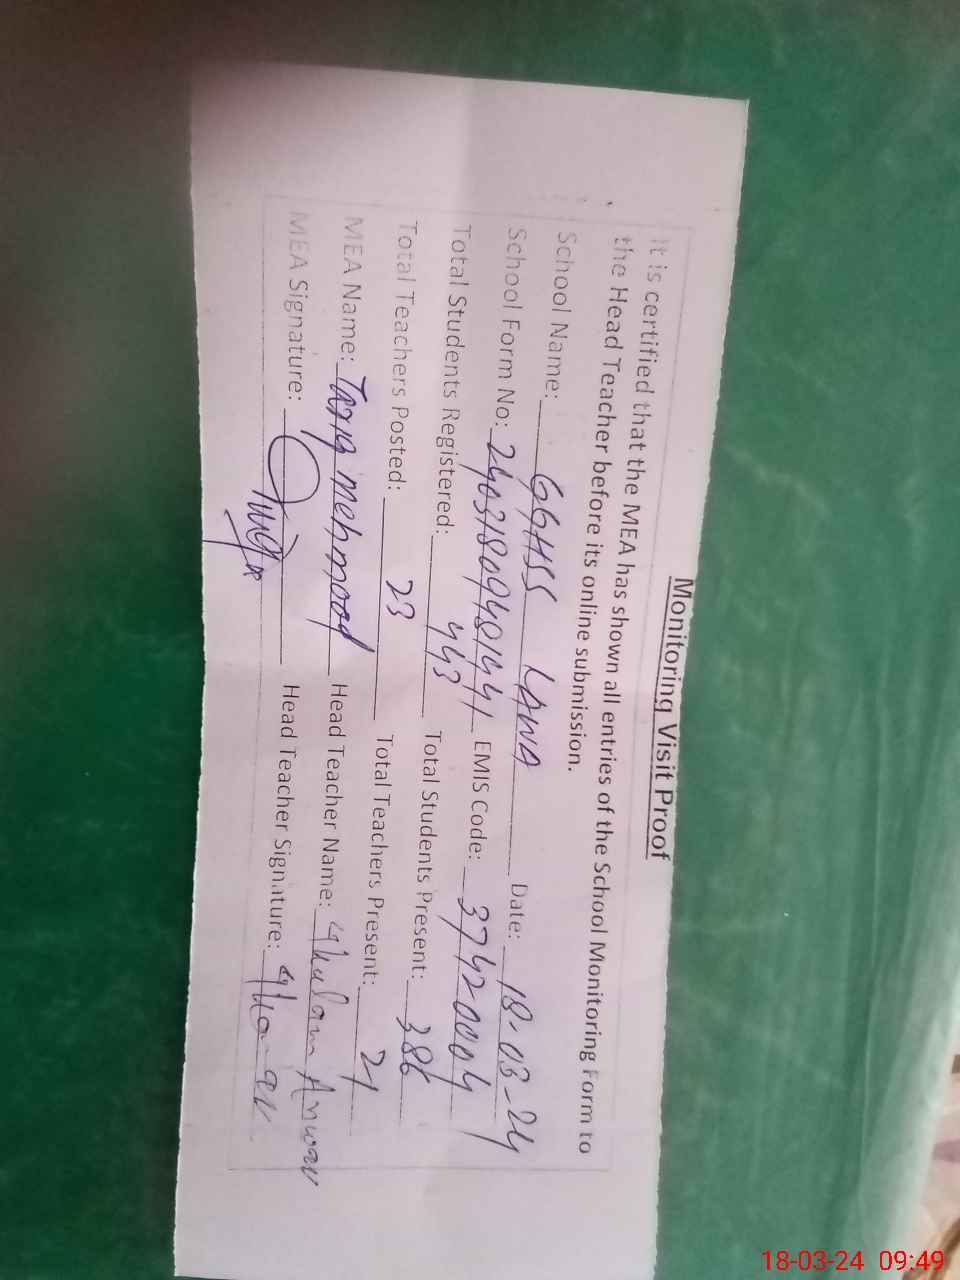 Monitoring Visit Proof
It is certified that the MEA has shown all entries of the School Monitoring Form to
the Head Teacher before its online submission.
School Name: GGHSS LAWA Date: 18-03-24
School Form No: EMIS Code: 37420004
Total Students Registered: 443 Total Students Present: 386
Total Teachers Posted: 23 Total Teachers Present: 21
MEA Name: Tariq mehmood Head Teacher Name: Ghulam Anwar
MEA Signature: Head Teacher Signature:
18-03-24 09:49